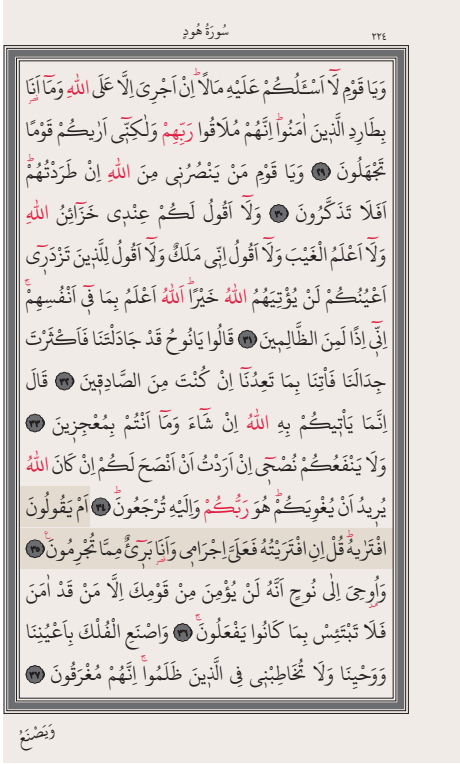 سُورَةُ هُودٍ
٢٢٤
وَيَا قَوْمِ لَٓا اَسْـَٔلُكُمْ عَلَيْهِ مَالًاۜ اِنْ اَجْرِيَ اِلَّا عَلَى اللّٰهِ وَمَٓا اَنَا۬
بِطَارِدِ الَّذِينَ اٰمَنُواۜ اِنَّهُمْ مُلَاقُوا رَبِّهِمْ وَلٰكِنّ۪ٓي اَرٰيكُمْ قَوْمًا
تَجْهَلُونَ ﴿٢٩﴾ وَيَا قَوْمِ مَنْ يَنْصُرُن۪ي مِنَ اللّٰهِ اِنْ طَرَدْتُهُمْۜ
اَفَلَا تَذَكَّرُونَ ﴿٣٠﴾ وَلَٓا اَقُولُ لَكُمْ عِنْد۪ي خَزَٓائِنُ اللّٰهِ
وَلَٓا اَعْلَمُ الْغَيْبَ وَلَٓا اَقُولُ اِنّ۪ي مَلَكٌ وَلَٓا اَقُولُ لِلَّذ۪ينَ تَزْدَر۪ٓي
اَعْيُنُكُمْ لَنْ يُؤْتِيَهُمُ اللّٰهُ خَيْرًاۜ اَللّٰهُ اَعْلَمُ بِمَا ف۪ٓي اَنْفُسِهِمْۚ
اِنّ۪ٓي اِذًا لَمِنَ الظَّالِم۪ينَ ﴿٣١﴾ قَالُوا يَانُوحُ قَدْ جَادَلْتَنَا فَاَكْثَرْتَ
جِدَالَنَا فَأْتِنَا بِمَا تَعِدُنَٓا اِنْ كُنْتَ مِنَ الصَّادِق۪ينَ ﴿٣٢﴾ قَالَ
اِنَّمَا يَأْت۪يكُمْ بِهِ اللّٰهُ اِنْ شَٓاءَ وَمَٓا اَنْتُمْ بِمُعْجِز۪ينَ ﴿٣٣﴾
وَلَا يَنْفَعُكُمْ نُصْح۪ٓي اِنْ اَرَدْتُ اَنْ اَنْصَحَ لَكُمْ اِنْ كَانَ اللّٰهُ
يُر۪يدُ اَنْ يُغْوِيَكُمْۜ هُوَ رَبُّكُمْ وَاِلَيْهِ تُرْجَعُونَۜ ﴿٣٤﴾ اَمْ يَقُولُونَ
افْتَرٰيهُۜ قُلْ اِنِ افْتَرَيْتُهُ فَعَلَيَّ اِجْرَام۪ي وَاَنَا۬ بَر۪ٓيءٌ مِمَّا تُجْرِمُونَ۟ ﴿٣٥﴾
وَاُو۫حِيَ اِلٰى نُوحٍ اَنَّهُ لَنْ يُؤْمِنَ مِنْ قَوْمِكَ اِلَّا مَنْ قَدْ اٰمَنَ
فَلَا تَبْتَئِسْ بِمَا كَانُوا يَفْعَلُونَۚ ﴿٣٦﴾ وَاصْنَعِ الْفُلْكَ بِاَعْيُنِنَا
وَوَحْيِنَا وَلَا تُخَاطِبْن۪ي فِي الَّذ۪ينَ ظَلَمُواۚ اِنَّهُمْ مُغْرَقُونَ ﴿٣٧﴾
وَيَصْنَعُ